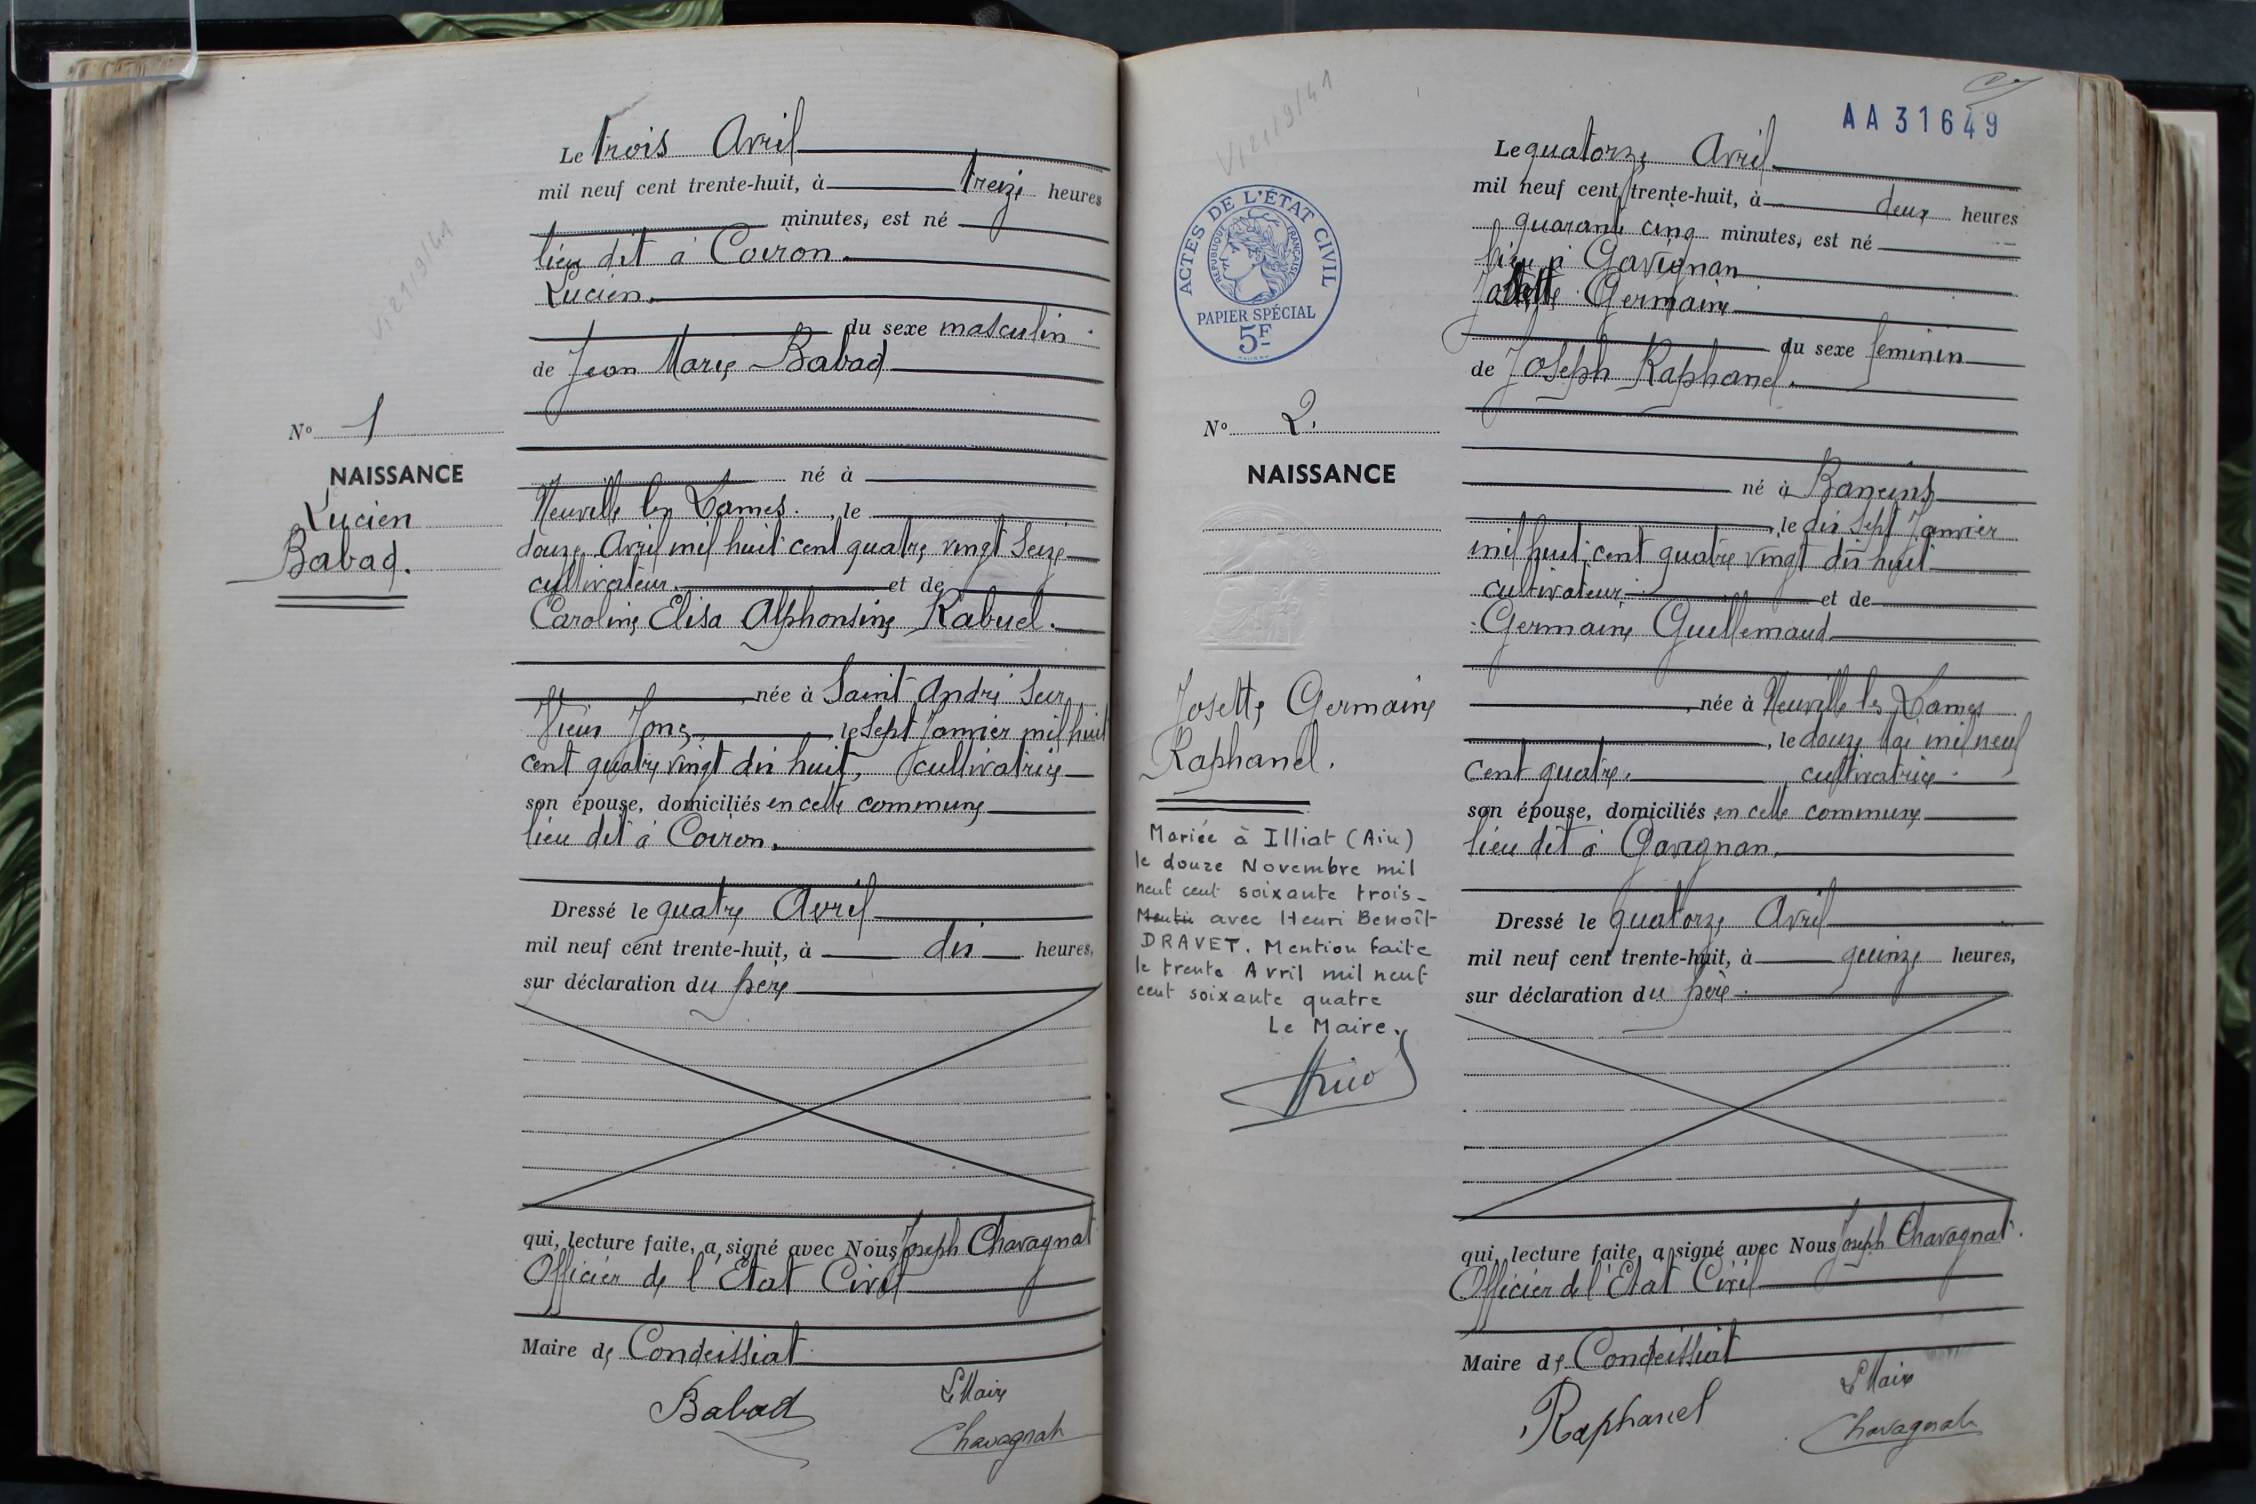 V, 21/9/41
N° 1
NAISSANCE
Lucien
Babad.
Le trois Avril
mil neuf cent trente-huit, à treize heures
minutes, est né
lieu dit à Coiron.
Lucien.
du sexe masculin
de Jean Marie Babad
né à
Neuville les Dames. , le
douze Avril mil huit cent quatre vingt seize
cultivateur. et de
Caroline Elisa Alphonsine Rabuel.
, née à Saint André sur
Vieux Jonc le sept Janvier mil huit
cent quatre vingt dix huit, cultivatrice
son épouse, domiciliés en cette commune
lieu dit à Coiron.
Dressé le quatre Avril
mil neuf cent trente-huit, à dix heures,
sur déclaration du père
qui, lecture faite, a signé avec Nous Joseph Chavagnat
Officier de l'Etat Civil
Maire de Condeissiat
Babad
Le Maire
Chavagnat
V, 21/9/41
AA31649
ACTES DE L'ÉTAT CIVIL
RÉPUBLIQUE FRANÇAISE
PAPIER SPÉCIAL
5F
N° 2.
NAISSANCE
Josette Germaine
Raphanel.
Mariée à Illiat (Ain)
le douze Novembre mil
neuf cent soixante trois-
avec Henri Benoît
DRAVET. Mention faite
le trente Avril mil neuf
cent soixante quatre
Le Maire,
Le quatorze Avril
mil neuf cent trente-huit, à deux heures
quarante cinq minutes, est né
lieu à Gavignan
Josette Germaine
du sexe féminin
de Joseph Raphanel.
né à Baneins
, le dix sept Janvier
mil huit cent quatre vingt dix huit
cultivateur et de
Germaine Guillemaud
, née à Neuville les Dames
, le douze Mai mil neuf
cent quatre, cultivatrice
son épouse, domiciliés en cette commune
lieu dit à Gavignan.
Dressé le quatorze Avril
mil neuf cent trente-huit, à quinze heures,
sur déclaration du père
qui, lecture faite, a signé avec Nous Joseph Chavagnat.
Officier de l'Etat Civil
Maire de Condeissiat
Raphanel
Le Maire
Chavagnat